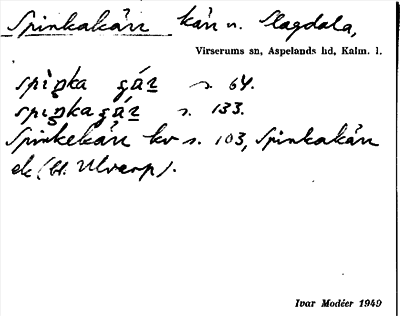 Spinkakån kån n. Slagdala,
Virserums sn, Aspelands hd, Kalm. l.
spìŋka gán s. 64.
spiŋkagán s. 133.
Spinkekån kv s. 103, Spinkakån
ek (bl. Ulvarp).
Ivar Modéer 1949